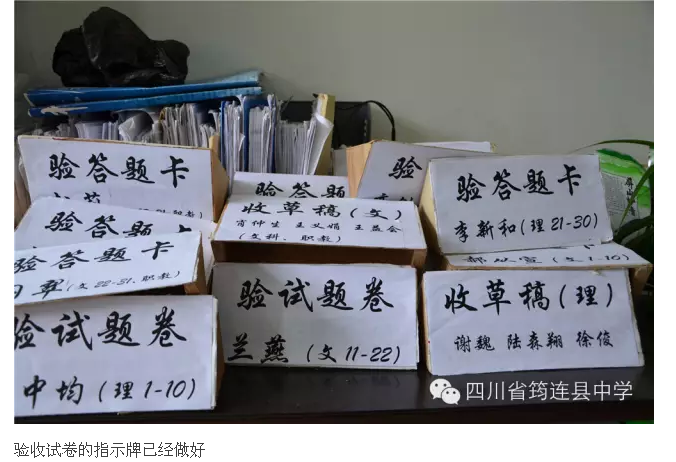 验答题卡
验答题卡
验答题卡
(文22-31、职教)
验试题卷
中均(理1-10)
验答题卡
收草稿(文)
肖仲生 王义娟 王益会
(文科、职教)
验试题卷
兰燕(文11-22)
验
验答题卡
李新和(理21-30)
(文1-10)
收草稿(理)
谢魏 陆森翔 徐俊
四川省筠连县中学
验收试卷的指示牌已经做好